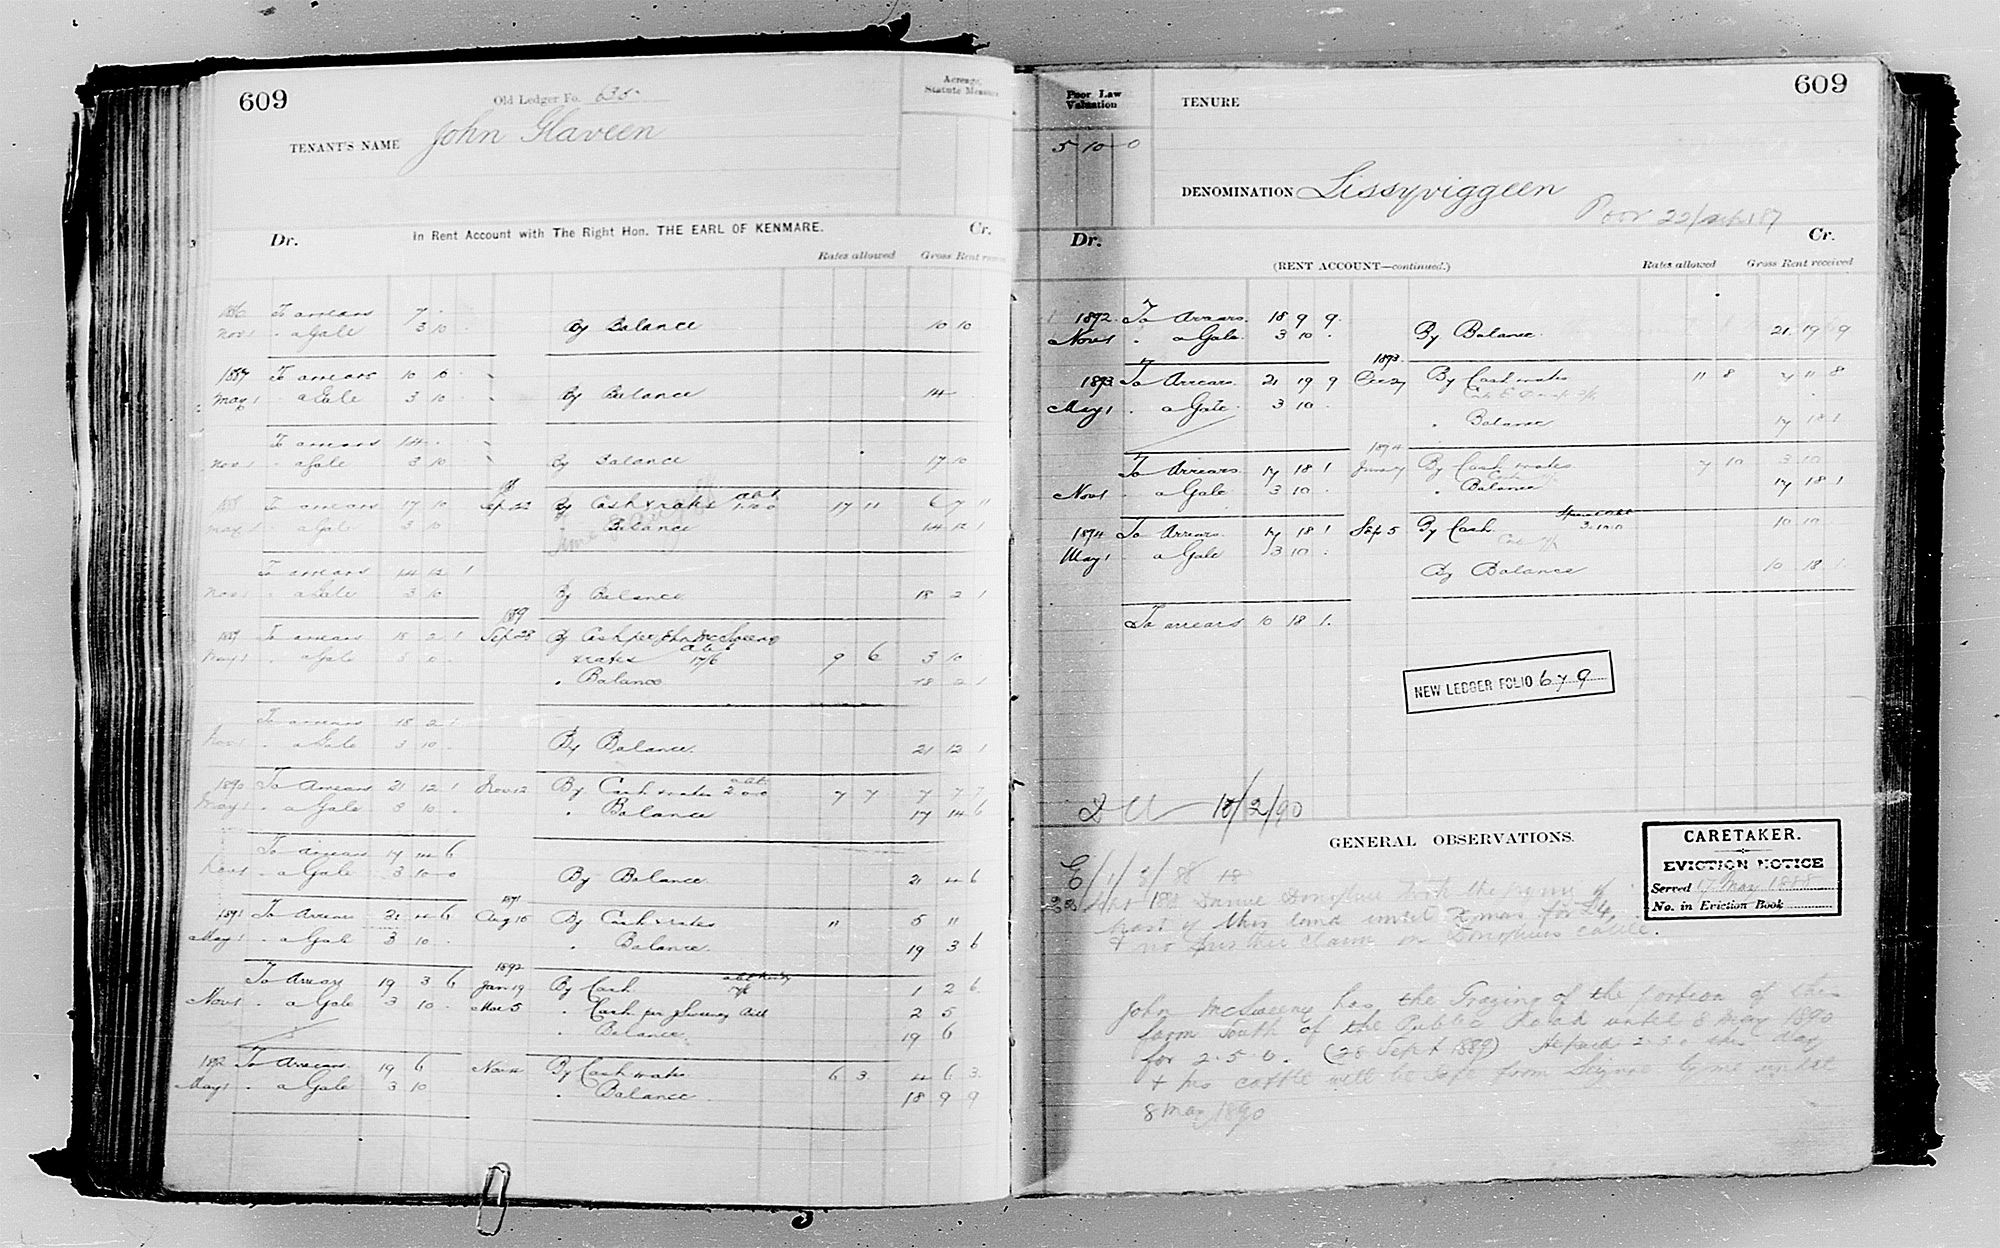 609
Old Ledger Fo. 635
TENANT'S NAME John Glaveen
Acreage, Statute Measure
In Rent Account with The Right Hon. THE EARL OF KENMARE.
Dr. Cr.
Rates allowed Gross Rent
1886 To arrears 7 .
Nov 1 " a Gale 3 10 By Balance 10 10
1887 To arrears 10 10
May 1 a Gale 3 10 By Balance 14
To arrears 14
Nov 1 " a Gale 3 10 By Balance 17 10
1888 To arrears 17 10 Sep 22 By Cash & rates 17 11 6 7 11
May 1 " a Gale 3 10 Balance 14 12 1
To arrears 14 12 1
Nov 1 " a Gale 3 10 By Balance 18 2 1
1889
1889 To arrears 18 2 1 Sep 28 By Cash per John McSweeny
May 1 " a Gale 3 10 & rates 17/6 9 6 3 10
" Balance 18 2 1
To arrears 18 2 1
Nov 1 " a Gale 3 10 By Balance 21 12 1
1890 To Arrears 21 12 1 Nov 12 By Cash & rates 2 0 0 7 7 7 7 7
May 1 " a Gale 3 10 " Balance 17 14 6
To arrears 17 14 6
Nov 1 " a Gale 3 10 0 By Balance 21 4 6
1891
1891 To Arrears 21 4 6 Aug 15 By Cash & rates 5 11
May 1 " a Gale 3 10 " Balance 19 3 6
1892
To Arrears 19 3 6 Jan 19 By Cash 1 2 6
Nov 1 " a Gale 3 10 Mar 5 " Cash per J Sweeny 2 5
" Balance 19 6
1892 To Arrears 19 6 Nov 4 By Cash & rates 6 3 4 6 3
May 1 " a Gale 3 10 " Balance 18 9 9
609
Poor Law Valuation
5 10 0
TENURE
DENOMINATION Lissyviggeen
Poor 22/Sep/87
Dr. Cr.
(RENT ACCOUNT—continued.)
Rates allowed Gross Rent received
1892 To Arrears 18 9 9
Nov 1 " a Gale 3 10 By Balance 21 19 9
1893
1893 To Arrears 21 19 9 Oct 27 By Cash & rates 11 8 7 11 8
May 1 " a Gale 3 10
" Balance 17 18 1
1894
To Arrears 17 18 1 Jan 27 By Cash & rates 7 10 3 10
Nov 1 " a Gale 3 10 " Balance 17 18 1
1894 To Arrears 17 18 1 Sep 5 By Cash 3.10.0 10 10
May 1 " a Gale 3 10
By Balance 10 18 1
To arrears 10 18 1
NEW LEDGER FOLIO 679
18/2/90
GENERAL OBSERVATIONS.
CARETAKER.
EVICTION NOTICE
Served 17 Mar 1888
No. in Eviction Book
E/1/3/88
22 Sept 188 Daniel Donoghue took the grazing of
part of this land until Xmas for £4,
& no further claim on Donoghues cattle.
John McSweeny has the Grazing of the portion of this
farm South of the Public Road until 8 May 1890
for 2.5.0. (28 Sept 1889) He paid this day
& his cattle will be safe from Seizure by me until
8 May 1890